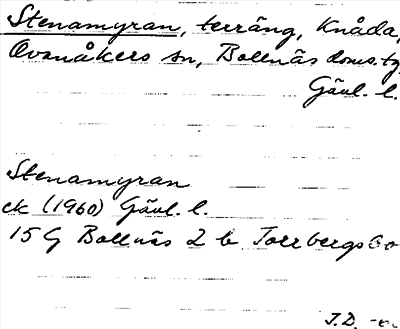 Stenamyran, terräng, Knåda,
Ovanåkers sn, Bollnäs doms.tg
Gävl. l.
Stenamyran
ek (1960) Gävl. l.
15 G Bollnäs 2 b Torrbergsbo
J.D.